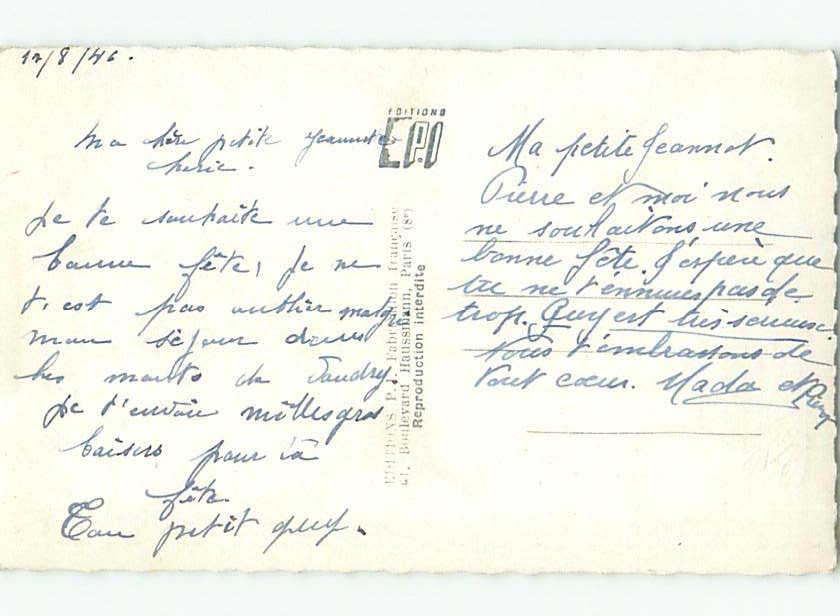 12/8/46.
Ma chère petite Jeannette
cherie.
Je te souhaite une
bonne fête, je ne
t'est pas oublier malgre
mon séjour dans
les monts de Vaudry.
Je t'envoie milles gros
baisers pour ta
fête.
Ton petit guy.
EDITIONS
EPJ
EDITIONS P.J. Fabrication française
61, Boulevard Haussmann, Paris (8e)
Reproduction interdite
Ma petite Jeannot.
Pierre et moi nous
ne souhaitons une
bonne fête. J'espère que
tu ne t'ennuies pas de
trop. Guy est très
Nous t'embrassons de
tout cœur. Nada et Pierre